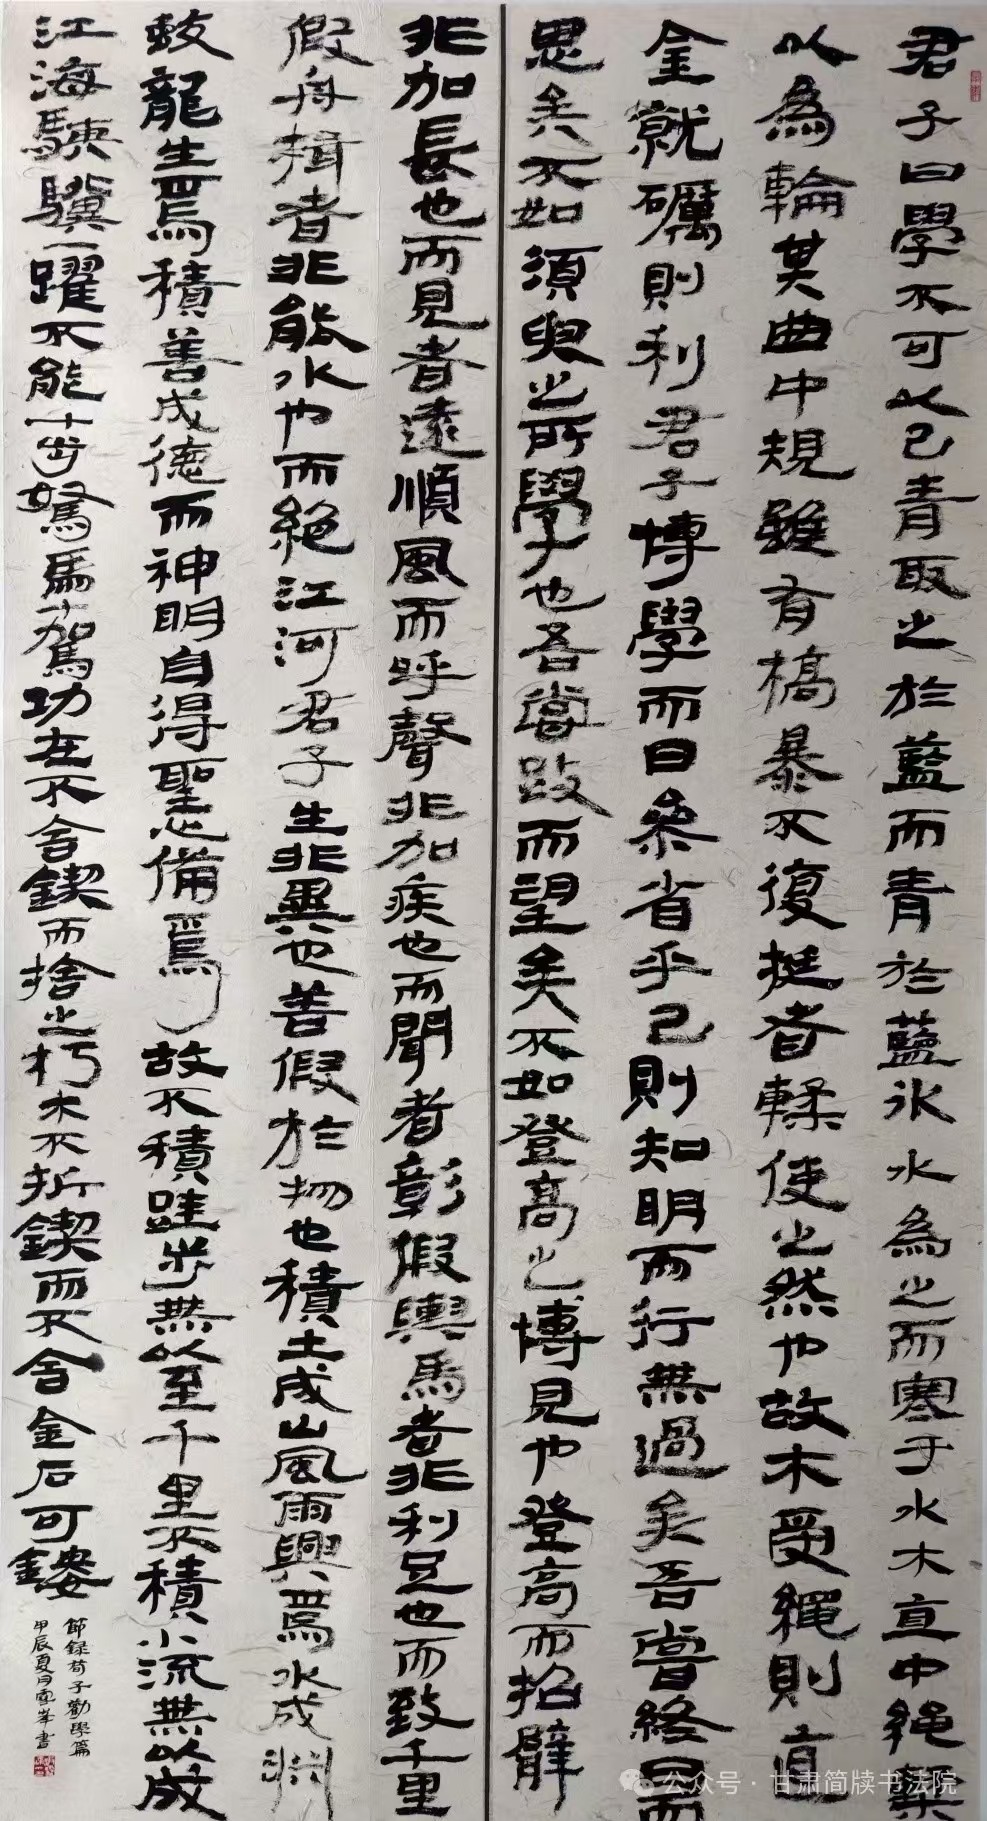 君子曰學不可以已青取之於藍而青於藍冰水為之而寒于水木直中繩輮
以為輪其曲中規雖有槁暴不復挺者輮使之然也故木受繩則直
金就礪則利君子博學而日參省乎己則知明而行無過矣吾嘗終日而
思矣不如須臾之所學也吾嘗跂而望矣不如登高之博見也登高而招臂
非加長也而見者遠順風而呼聲非加疾也而聞者彰假輿馬者非利足也而致千里
假舟楫者非能水也而絕江河君子生非異也善假於物也積土成山風雨興焉水成淵
蛟龍生焉積善成德而神明自得聖心備焉故不積跬步無以至千里不積小流無以成
江海騏驥一躍不能十步駑馬十駕功在不舍鍥而捨之朽木不折鍥而不舍金石可鏤
節録荀子勸學篇
甲辰夏月
書
公众号·甘肃简牍书法院